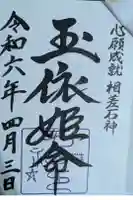 心願成就 相差石神
玉依姫命
令和六年四月三日